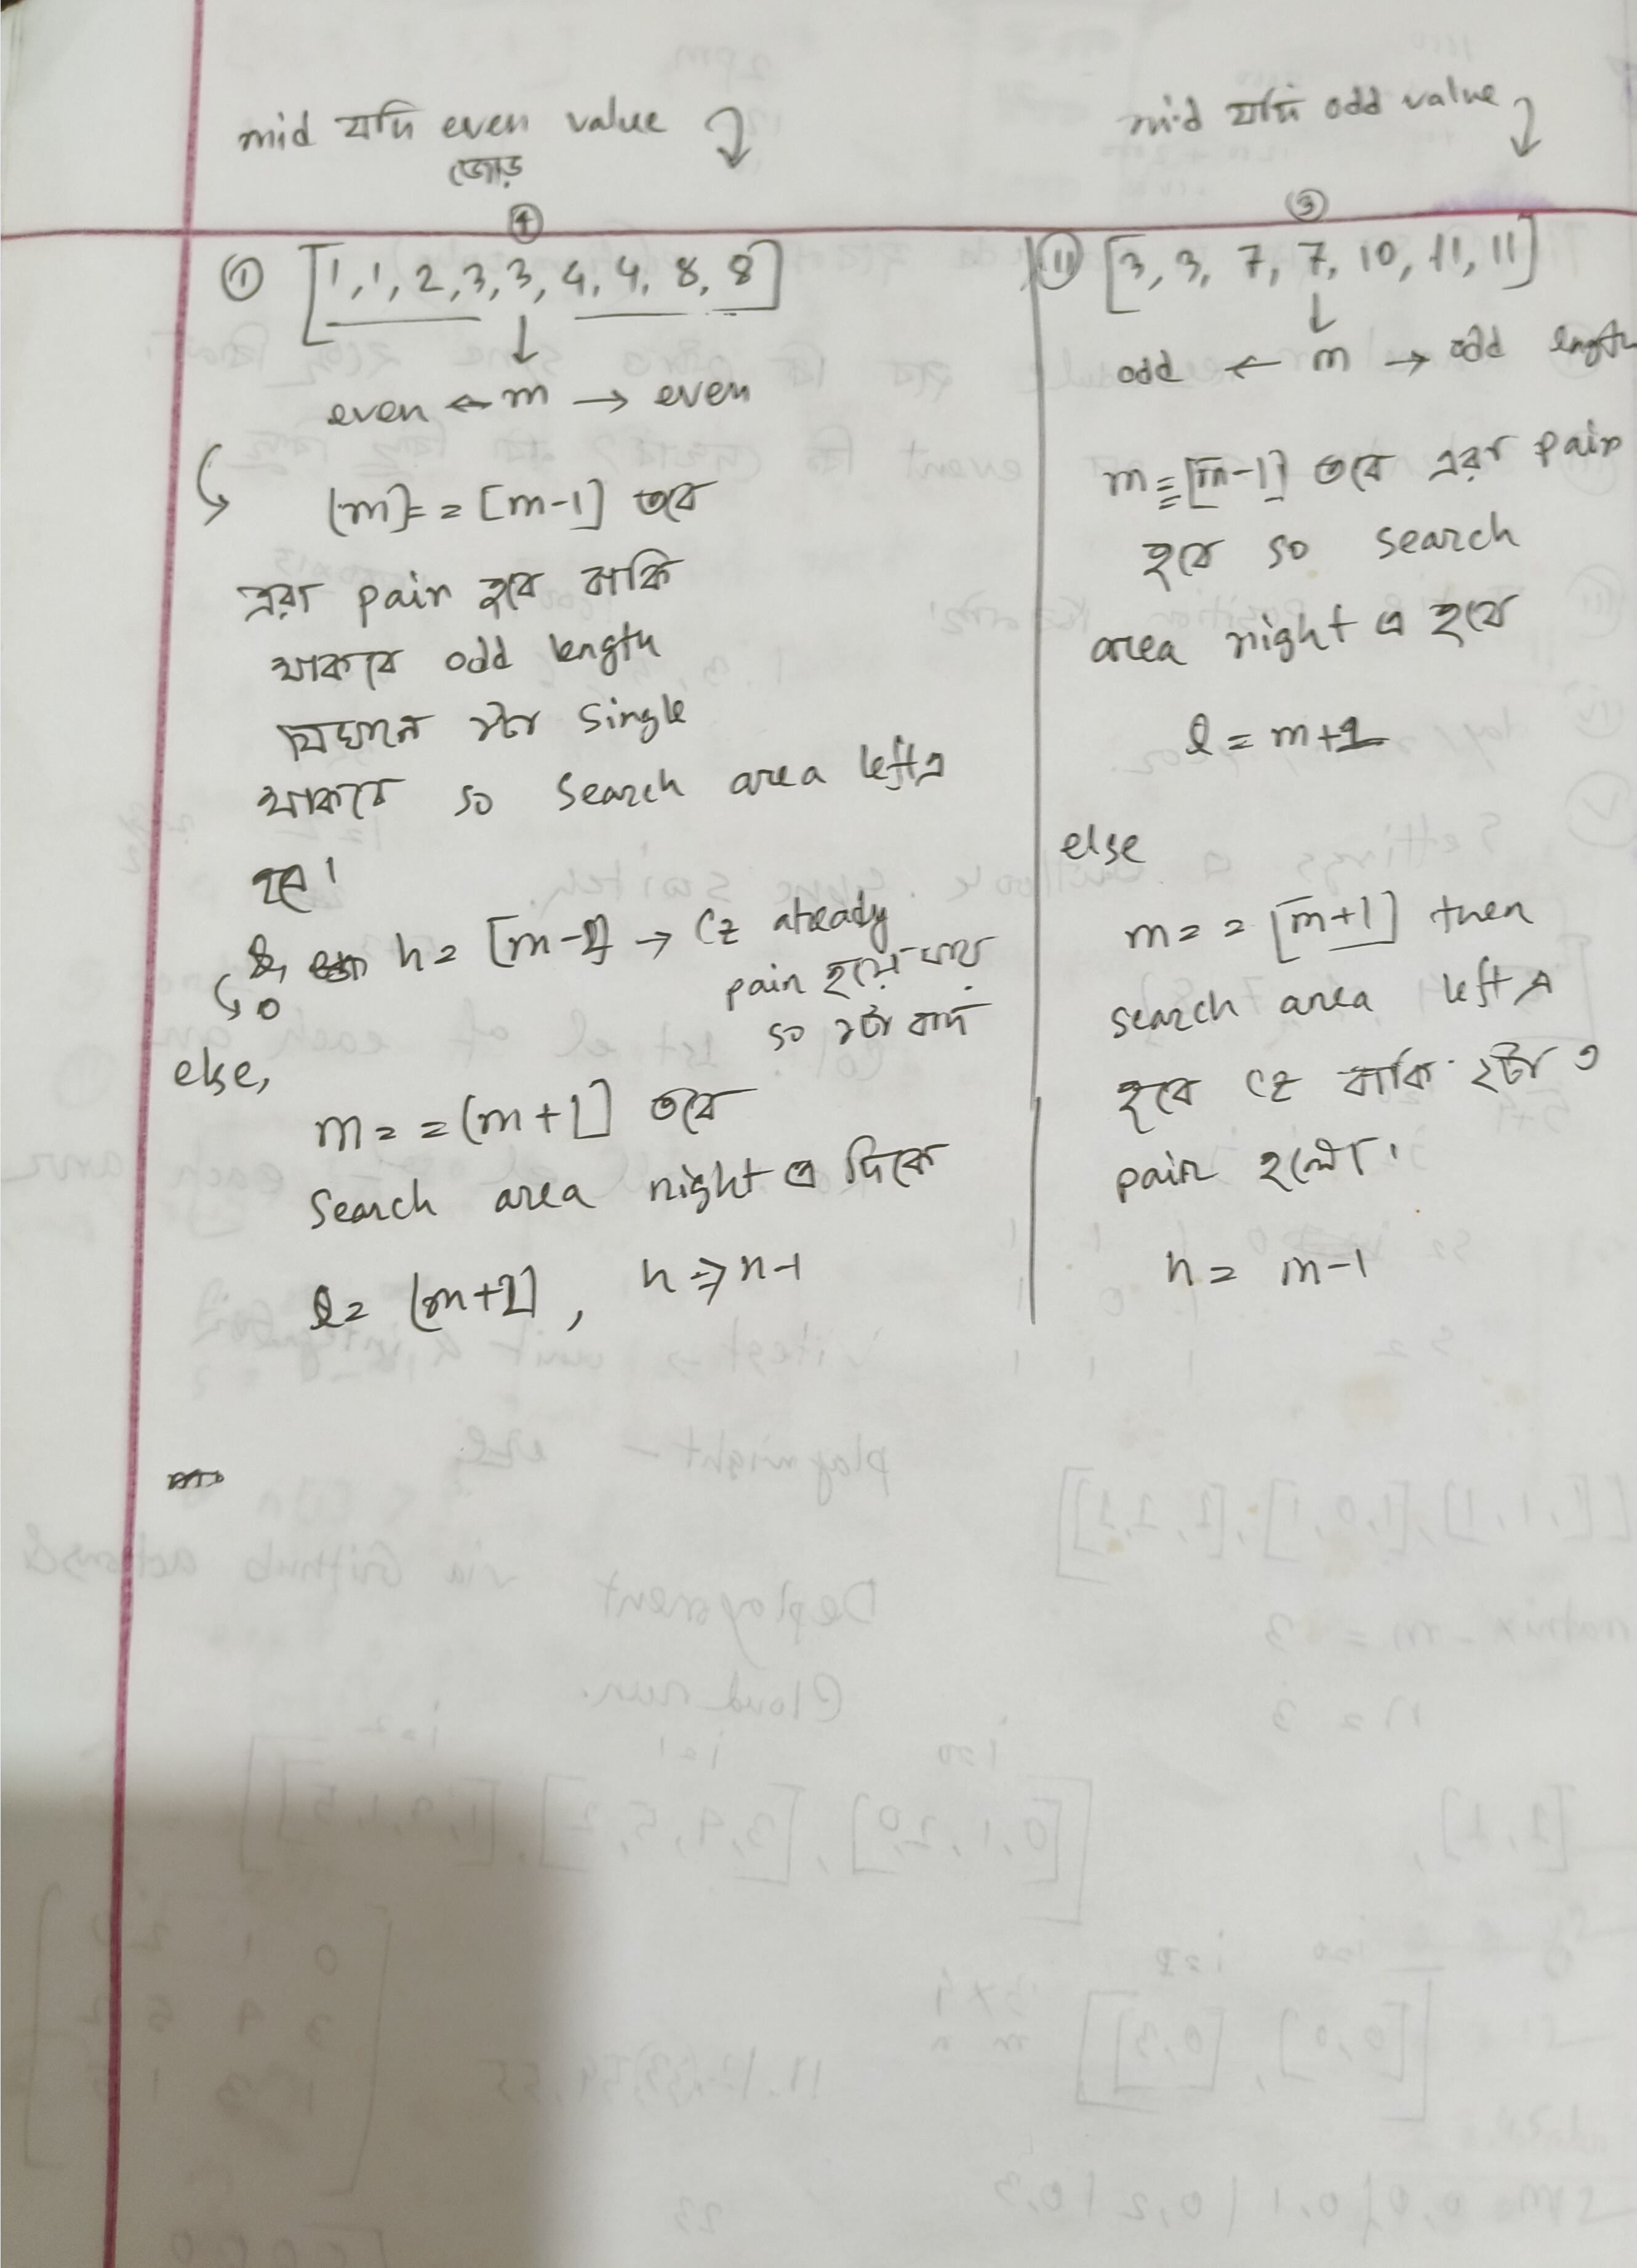 mid যদি even value
জোড়
④
① [1,1,2,3,3,4,4,8,8]
even ← m → even
[m] == [m-1] তবে
এরা pair হবে বাকি
থাকবে odd length
যেখানে ১টা single
থাকবে so search area left এ
হবে।
h = [m-2] → cz already
pair হয়ে যায়
so ২টা বাদ
0
else,
m == [m+1] তবে
search area right এ দিকে
l = [m+2], h => n-1
mid যদি odd value
③
⑪ [3, 3, 7, 7, 10, 11, 11]
odd ← m → odd length
m == [m-1] তবে এরা pair
হবে so search
area right এ হবে
l = m+1
else
m == [m+1] then
search area left এ
হবে cz বাকি ২টা ও
pair হলো।
h = m-1